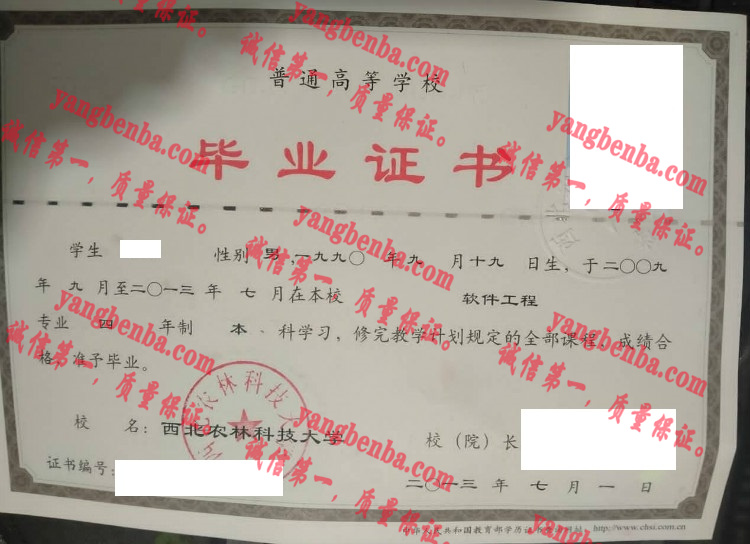 普通高等学校
毕业证书
学生 性别 男 ,一九九〇 年 九 月 十九 日生, 于 二〇〇九
年 九 月至 二〇一三 年 七 月在本校 软件工程
专业 四 年制 本 科学习, 修完教学计划规定的全部课程, 成绩合
格, 准予毕业。
校 名: 西北农林科技大学
校 (院) 长
证书编号:
二〇一三 年 七 月 一 日
中华人民共和国教育部学历证书查询网址: http://www.chsi.com.cn
农林科技大
yangbenba.com
诚信第一, 质量保证。
yangbenba.com
诚信第一, 质量保证。
yangbenba.com
诚信第一, 质量保证。
yangbenba.com
诚信第一, 质量保证。
yangbenba.com
诚信第一, 质量保证。
yangbenba.com
诚信第一, 质量保证。
yangbenba.com
诚信第一, 质量保证。
yangbenba.com
诚信第一, 质量保证。
yangbenba.com